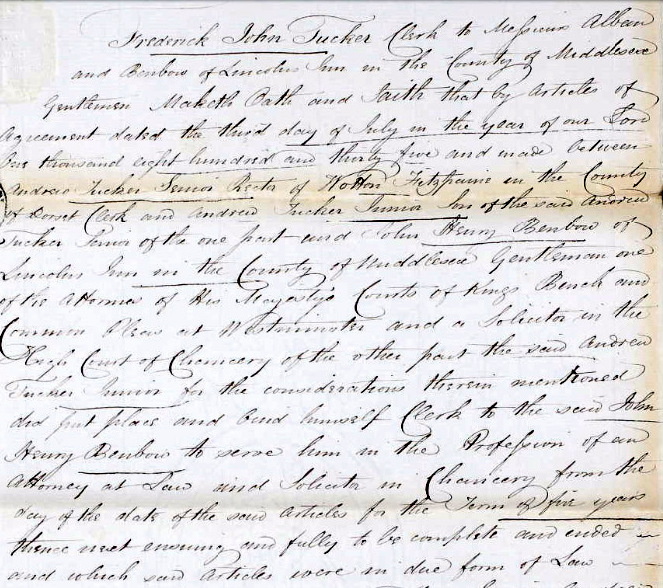 Frederick John Tucker Clerk to Messieurs Alban
and Benbow of Lincolns Inn in the County of Middlesex
Gentlemen Maketh Oath and Saith that by Articles of
Agreement dated the third day of July in the year of our Lord
One thousand eight hundred and thirty five and made between
Andrew Tucker Senior Rector of Wotton Fitzpaine in the County
of Dorset Clerk and Andrew Tucker Junior Son of the said Andrew
Tucker Senior of the one part and John Henry Benbow of
Lincolns Inn in the County of Middlesex Gentleman one
of the Attornies of His Majestys Courts of Kings Bench and
Common Pleas at Westminster and a Solicitor in the
High Court of Chancery of the other part the said Andrew
Tucker Junior for the considerations therein mentioned
did put place and bind himself Clerk to the said John
Henry Benbow to serve him in the Profession of an
Attorney at Law and Solicitor in Chancery from the
day of the date of the said Articles for the Term of five years
thence next ensuing and fully to be complete and ended
and which said Articles were in due form of Law